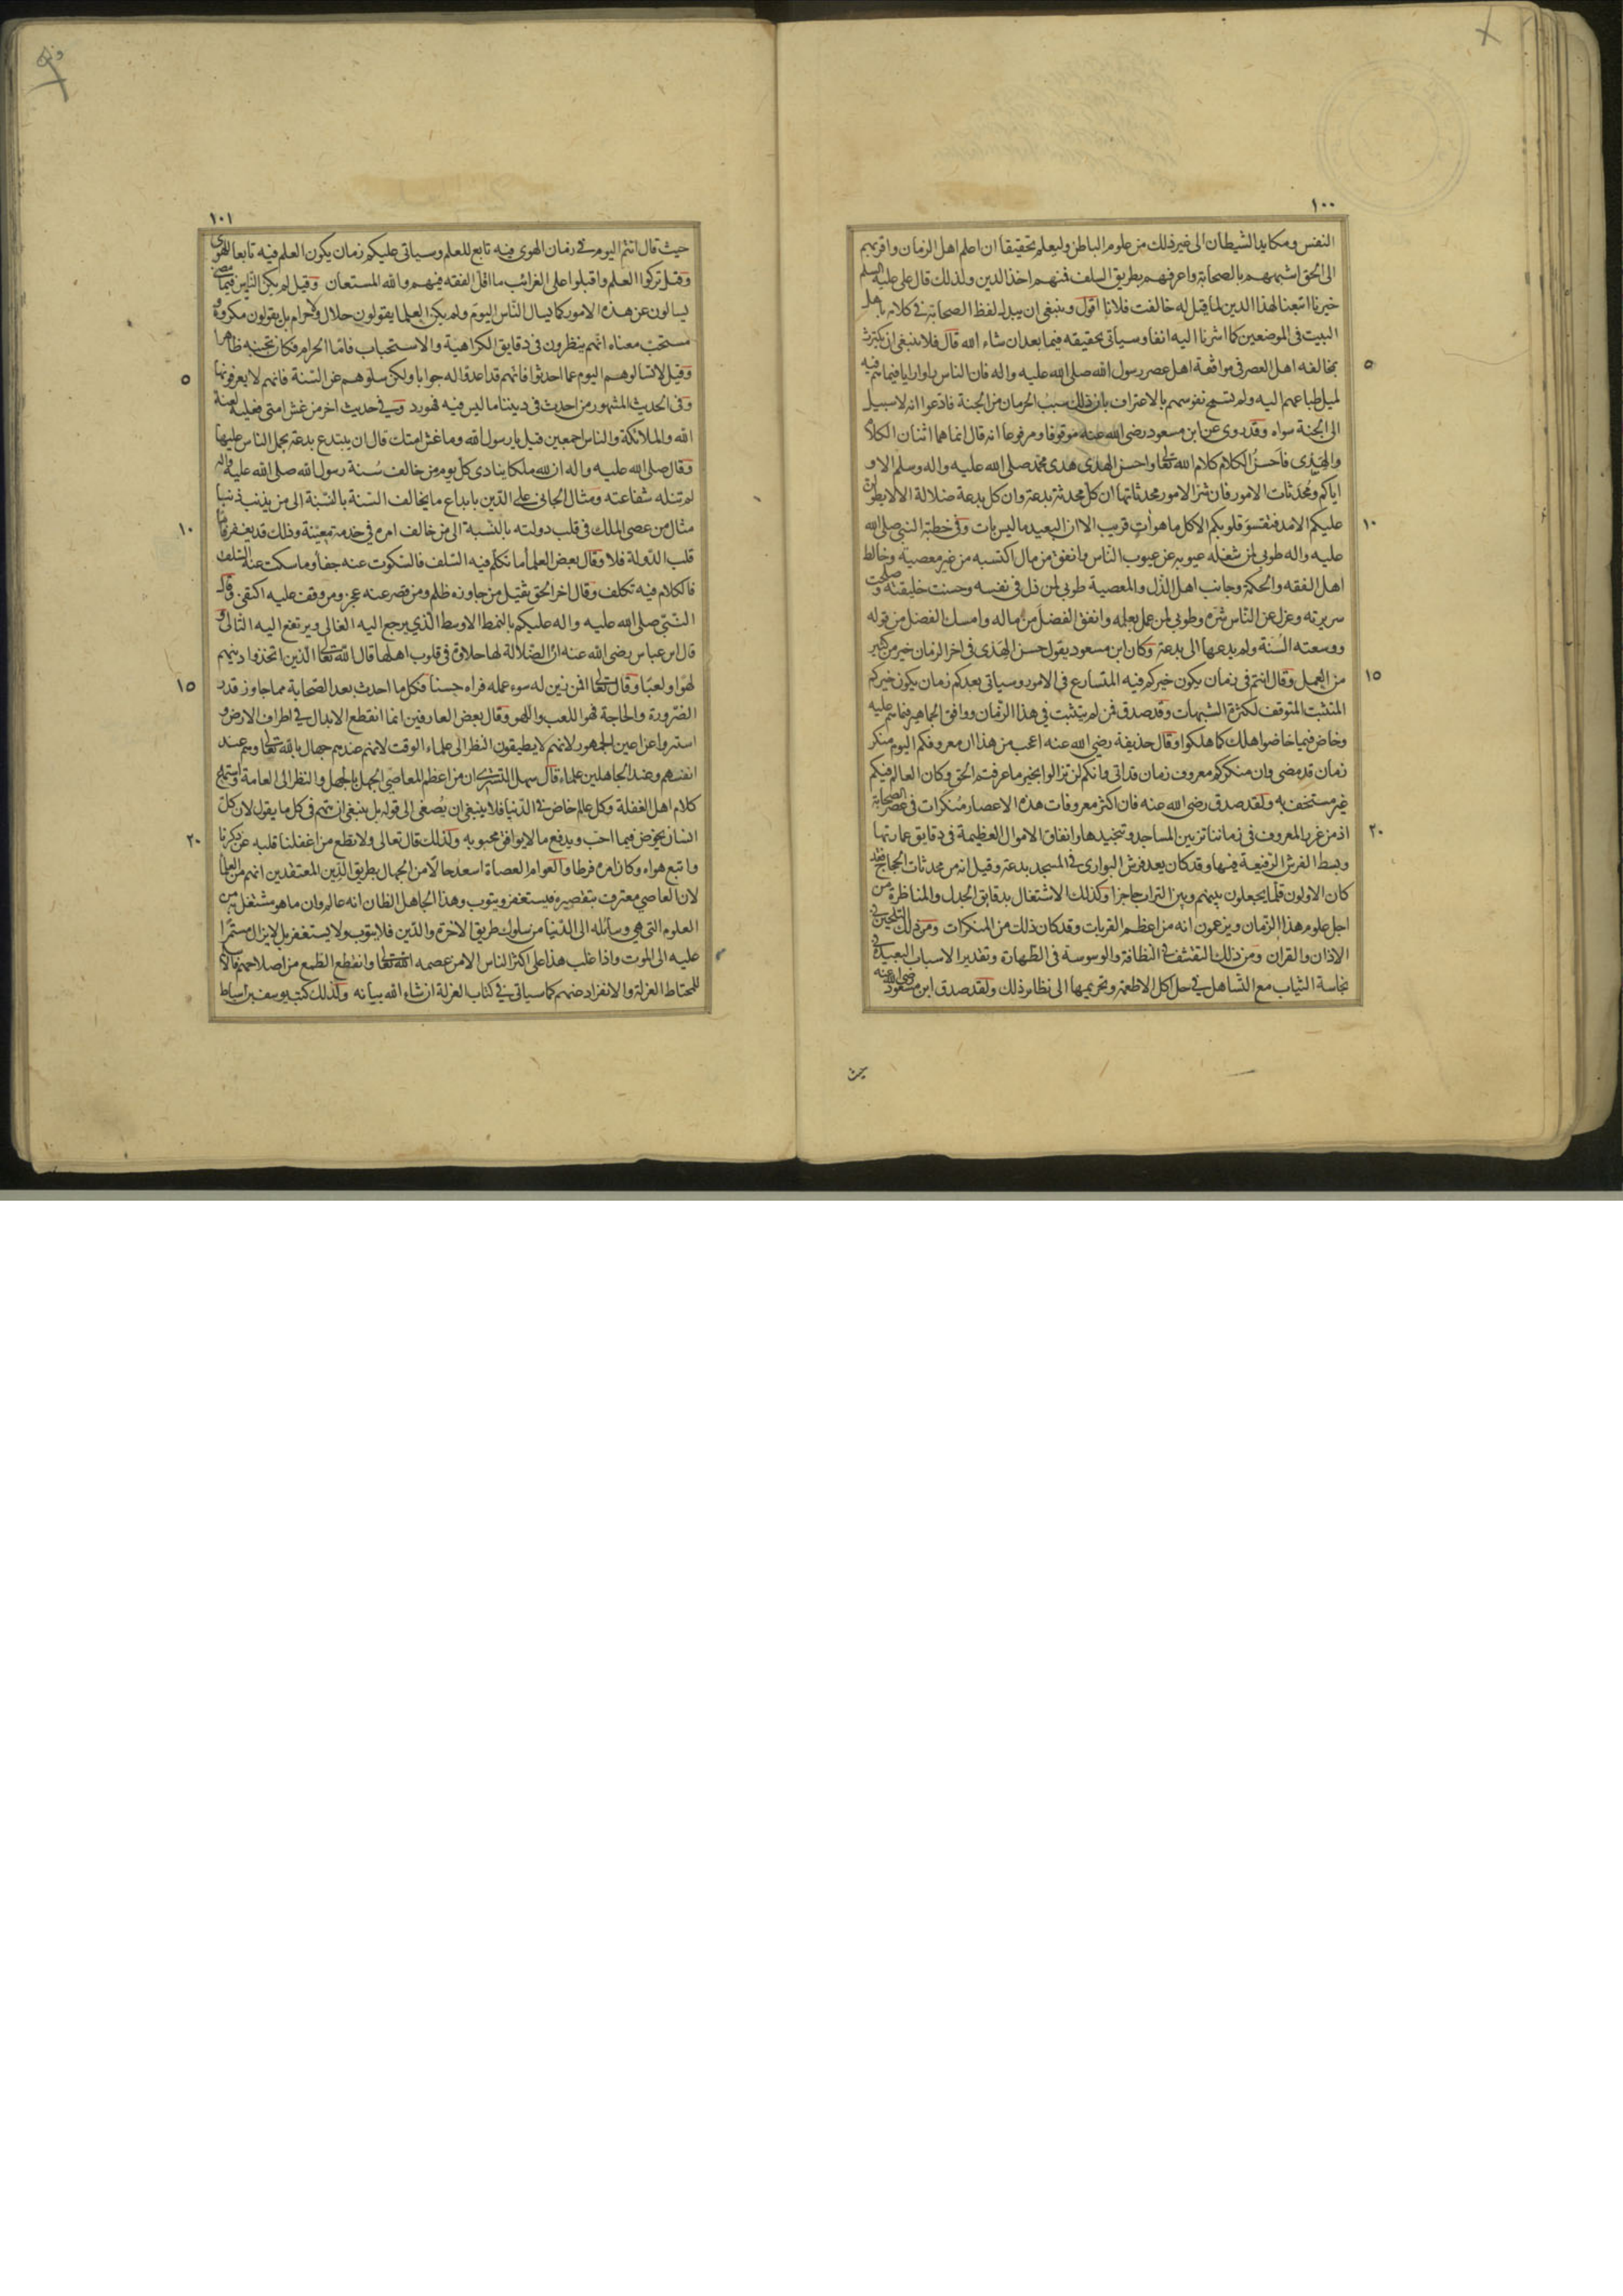 ١٠٠
النفس ومكايد الشيطان الى غير ذلك من علوم الباطن وليعلم تحقيقا ان اعلم اهل الزمان واقربهم
الى الحق اشبههم بالصحابة واعرفهم بطريق السلف فمنهم اخذ الدين ولذلك قال على عليه السلم
خيرنا اتبعنا لهذا الدين لما قيل له خالفت فلانا اقول وينبغى ان يبدل لفظ الصحابة فى كلامه باهل
البيت فى الموضعين كما اشرنا اليه انفا وسيأتى تحقيقه فيما بعد ان شاء الله قال فلا ينبغى ان يكترث
٥
بمخالفة اهل العصر فى موافقة اهل عصر رسول الله صلى الله عليه واله فان الناس راوا رايا فيما هم فيه
لميل طباعهم اليه ولم تسمح نفوسهم بالاعتراف بان ذلك سبب الحرمان من الجنة فادعوا انه لا سبيل
الى الجنة سواه وقد روى عن ابن مسعود رضى الله عنه موقوفا ومرفوعا انه قال انما هما اثنان الكلام
والهدى فاحسن الكلام كلام الله تعالى واحسن الهدى هدى محمد صلى الله عليه واله وسلم الا و
اياكم ومحدثات الامور فان شر الامور محدثاتها ان كل محدثة بدعة وان كل بدعة ضلالة الا لا يطولن
١٠
عليكم الامد فتقسو قلوبكم الا كل ما هو ات قريب الا ان البعيد ما ليس بات وفى خطبة النبى صلى الله
عليه واله طوبى لمن شغله عيوبه عن عيوب الناس وانفق من مال اكتسبه من غير معصية وخالط
اهل الفقه والحكمة وجانب اهل الذل والمعصية طوبى لمن ذل فى نفسه وحسنت خليقته وصلحت
سريرته وعزل عن الناس شره وطوبى لمن عمل بعلمه وانفق الفضل من ماله وامسك الفضل من قوله
ووسعته السنة ولم يدعها الى بدعة وكان ابن مسعود يقول حسن الهدى فى اخر الزمان خير من كثير
١٥
من العمل وقال انتم فى زمان يكون خيركم فيه المتسارع فى الامور وسياتى بعدكم زمان يكون خيركم
المتثبت المتوقف لكثرة الشبهات وقد صدق فمن لم يتثبت فى هذا الزمان ووافق الجماهير فيما هم عليه
وخاض فيما خاضوا هلك كما هلكوا وقال حذيفة رضي الله عنه اعجب من هذا ان معروفكم اليوم منكر
زمان قد مضى وان منكركم معروف زمان قد اتى وانكم لن تزالوا بخير ما عرفتم الحق وكان العالم فيكم
غير مستخف به ولقد صدق رضى الله عنه فان اكثر معروفات هذه الاعصار منكرات فى عصر الصحابة
٢٠
اذ من غرر المعروف فى زماننا تزيين المساجد وتنجيدها وانفاق الاموال العظيمة فى دقايق عمارتها
وبسط الفرش الرفيعة فيها وقد كان يعد فرش البوارى فى المسجد بدعة وقيل انه من محدثات الحجاج فقد
كان الاولون قلما يجعلون بينهم وبين التراب حاجزا وكذلك الاشتغال بدقايق الجدل والمناظرة من
اجل علوم هذا الزمان ويزعمون انه من اعظم القربات وقد كان ذلك من المنكرات ومن ذلك التلحين فى
الاذان والقران ومن ذلك التقشف فى النظافة والوسوسة فى الطهارة وتقدير الاسباب البعيدة فى
نجاسة الثياب مع التساهل فى حل اكل الاطعمة وتحريمها الى نظاير ذلك ولقد صدق ابن مسعود رضى الله عنه
حيث
١٠١
حيث قال انتم اليوم فى زمان الهوى فيه تابع للعلم وسياتى عليكم زمان يكون العلم فيه تابعا للهوى
وقيل تركوا العلم واقبلوا على الغرائب ما اقل الفقه فيهم والله المستعان وقيل لم يكن الناس فيما مضى
يسالون عن هذه الامور كما يسال الناس اليوم ولم يكن العلما يقولون حلال ولا حرام بل يقولون مكروه و
مستحب معناه انهم ينظرون فى دقايق الكراهية والاستحباب فاما الحرام فكان تجنبه ظاهرا
٥
وقيل لا تسالوهم اليوم عما احدثوا فانهم قد اعدوا له جوابا ولكن سلوهم عن السنة فانهم لا يعرفونها
وفى الحديث المشهور من احدث فى ديننا ما ليس فيه فهو رد وفى حديث اخر من غش امتى فعليه لعنة
الله والملائكة والناس اجمعين قيل يا رسول الله وما غش امتك قال ان يبتدع بدعة يحمل الناس عليها
وقال صلى الله عليه واله ان لله ملكا ينادى كل يوم من خالف سنة رسول الله صلى الله عليه واله
لم تنله شفاعته ومثال الجانى على الدين بابداع ما يخالف السنة بالنسبة الى من يذنب ذنبا
١٠
مثال من عصى الملك فى قلب دولته بالنسبة الى من خالف امره فى خدمة معينة وذلك قد يغفر فاما
قلب الدولة فلا وقال بعض العلما ما تكلم فيه السلف فالسكوت عنه جفا وما سكت عنه السلف
فالكلام فيه تكلف وقال اخر الحق ثقيل من جاوزه ظلم ومن قصر عنه عجز ومن وقف عليه اكتفى وقال
النبى صلى الله عليه واله عليكم بالنمط الاوسط الذي يرجع اليه الغالى ويرتفع اليه التالى و
قال ابن عباس رضى الله عنه ان الضلالة لها حلاوة فى قلوب اهلها قال الله تعالى الذين اتخذوا دينهم
١٥
لهوا ولعبا وقال تعالى افمن زين له سوء عمله فراه حسنا فكل ما احدث بعد الصحابة مما جاوز قدر
الضرورة والحاجة فهو اللعب واللهو وقال بعض العارفين انما انقطع الابدال فى اطراف الارض و
استتروا عن اعين الجمهور لانهم لا يطيقون النظر الى علماء الوقت لانهم عندهم جهال بالله تعالى وهم عند
انفسهم وعند الجاهلين علماء قال سهل التسترى ان من اعظم المعاصى الجهل بالجهل والنظر الى العامة واستماع
كلام اهل الغفلة وكل عالم خاض فى الدنيا فلا ينبغى ان يصغى الى قوله بل ينبغى ان يتهم فى كل ما يقول لان كل
٢٠
انسان يخوض فيما احب ويدفع ما لا يوافق محبوبه ولذلك قال تعالى ولا تطع من اغفلنا قلبه عن ذكرنا
واتبع هواه وكان امره فرطا والعوام العصاة اسعد حالا من الجهال بطريق الدين المعتقدين انهم من العلما
لان العاصي معترف بتقصيره فيستغفر ويتوب وهذا الجاهل الظان انه عالم وان ما هو مشتغل به من
العلوم التى هي وسائله الى الدنيا من سلوك طريق الاخرة والدين فلا يتوب ولا يستغفر بل لا يزال مستمرا
عليه الى الموت واذا غلب هذا على اكثر الناس الا من عصمه الله تعالى وانقطع الطمع من اصلاحهم فالاسلم
للمحتاط العزلة والانفراد عنهم كما سياتى فى كتاب العزلة ان شاء الله بيانه ولذلك كتب يوسف بن اسباط